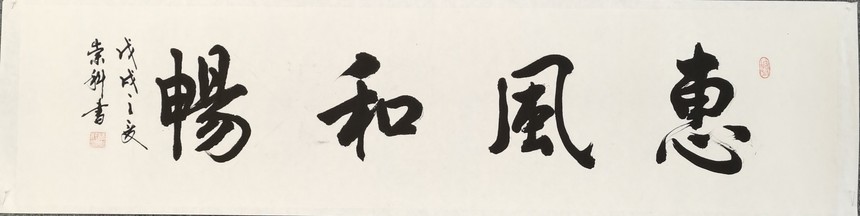 惠風和暢
戊戌之夏
崇科書